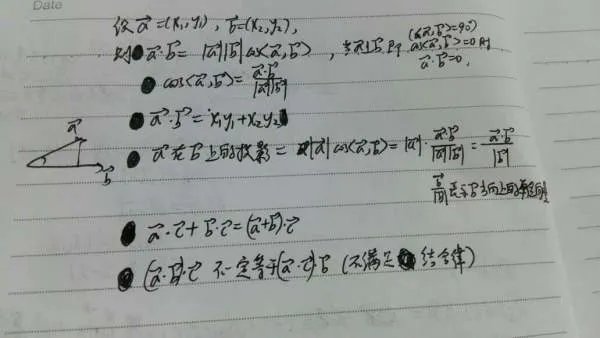 Date
设a⃗=(x₁,y₁), b⃗=(x₂,y₂),
则 a⃗·b⃗=|a⃗||b⃗|cos⟨a⃗,b⃗⟩, 当a⃗⊥b⃗时 (⟨a⃗,b⃗⟩=90°) cos⟨a⃗,b⃗⟩=0 则 a⃗·b⃗=0.
cos⟨a⃗,b⃗⟩=a⃗·b⃗/|a⃗||b⃗|
a⃗·b⃗=x₁y₁+x₂y₂
a⃗在b⃗上的投影=|a⃗|cos⟨a⃗,b⃗⟩=|a⃗|·a⃗·b⃗/|a⃗||b⃗|=a⃗·b⃗/|b⃗|
a⃗
b⃗
b⃗/|b⃗|表示b⃗方向上的单位向量
a⃗·c⃗+b⃗·c⃗=(a⃗+b⃗)·c⃗
(a⃗·b⃗)·c⃗ 不一定等于(a⃗·c⃗)·b⃗ (不满足结合律)